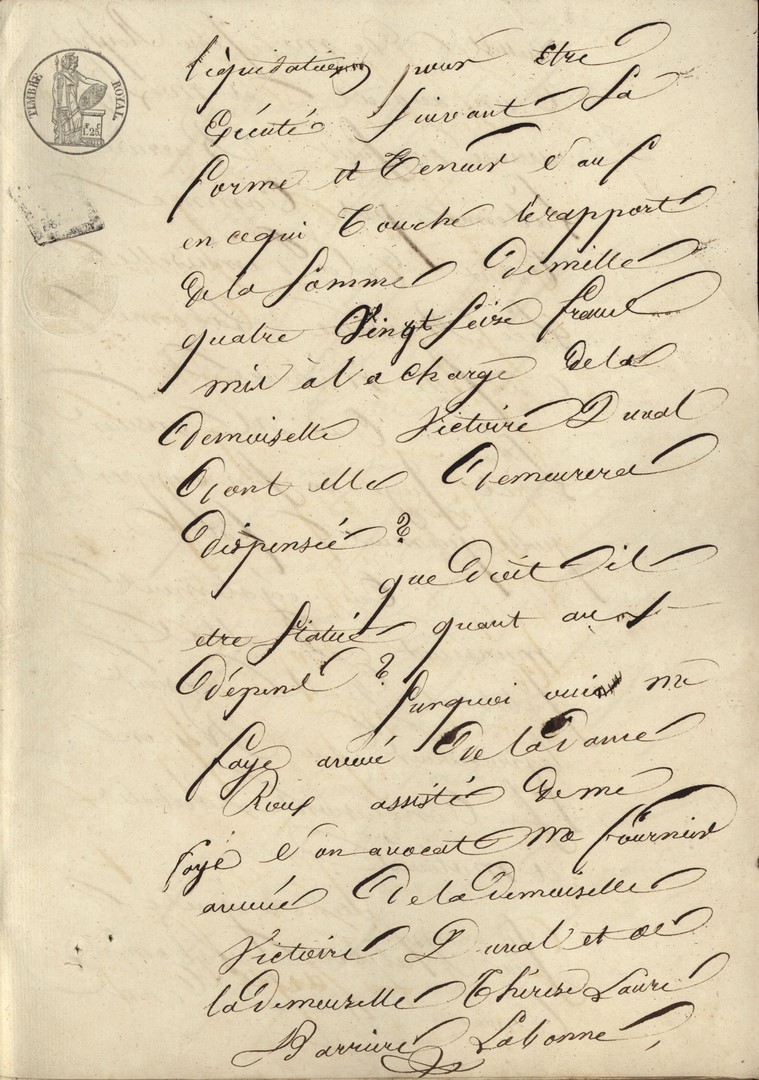 TIMBRE ROYAL
1F.25c
liquidation pour être
Exécuté Suivant Sa
forme et Teneur Sauf
en cequi Touche lerapport
dela Somme demille
quatre Vingt Seise francs
mis à la charge dela
Demoiselle Victoire Duval
Dont elle Demeurera
Dispensée ?
que doit il
etre Statué quant aux
Dépens ?
Surquoi ouis me
faye avoué De la Dame
Roux assisté De me
faye Son avocat me fournier
avoué De la Demoiselle
Victoire Duval et de
la Demoiselle Thérèse Laure
Barriere Labonne,